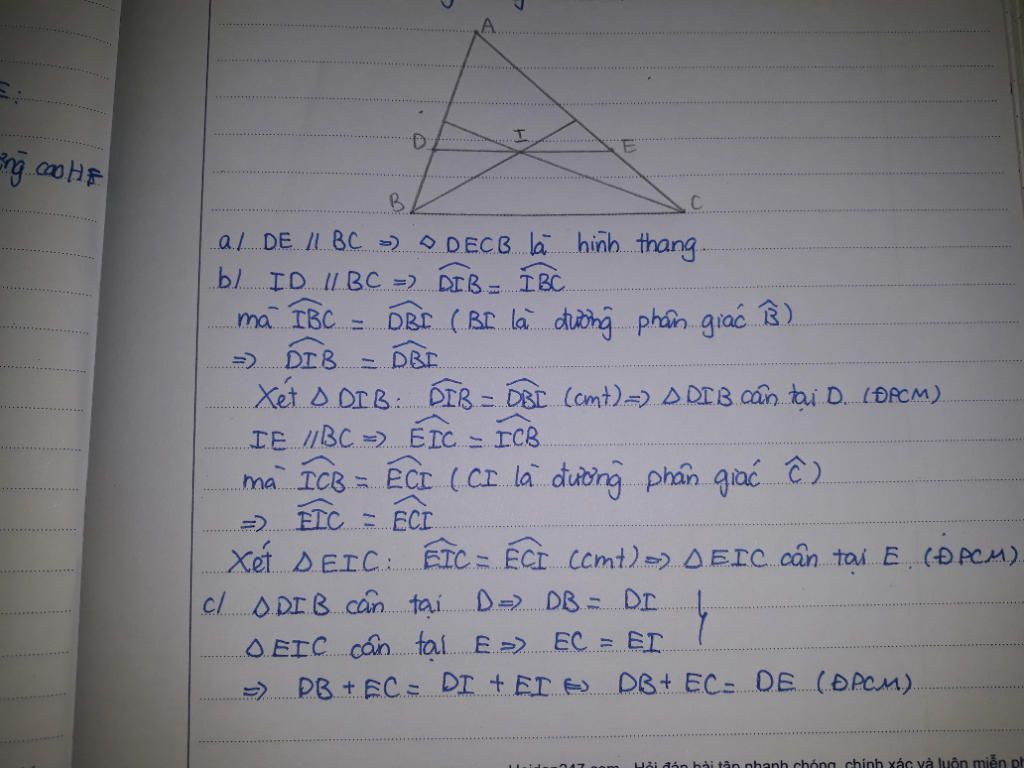 A
D
I
E
B
C
E:
cao HE
a/ DE // BC => ◇ DECB là hình thang.
b/ ID // BC => \widehat{DIB} = \widehat{IBC}
mà \widehat{IBC} = \widehat{DBI} ( BI là đường phân giác \widehat{B} )
=> \widehat{DIB} = \widehat{DBI}
Xét △ DIB: \widehat{DIB} = \widehat{DBI} (cmt) => △ DIB cân tại D. (ĐPCM)
IE // BC => \widehat{EIC} = \widehat{ICB}
mà \widehat{ICB} = \widehat{ECI} ( CI là đường phân giác \widehat{C} )
=> \widehat{EIC} = \widehat{ECI}
Xét △ EIC: \widehat{EIC} = \widehat{ECI} (cmt) => △ EIC cân tại E. (ĐPCM)
c/ △ DIB cân tại D => DB = DI }
△ EIC cân tại E => EC = EI
=> DB + EC = DI + EI <=> DB + EC = DE (ĐPCM)
Hoidap247.com - Hỏi đáp bài tập nhanh chóng, chính xác và luôn miễn ph